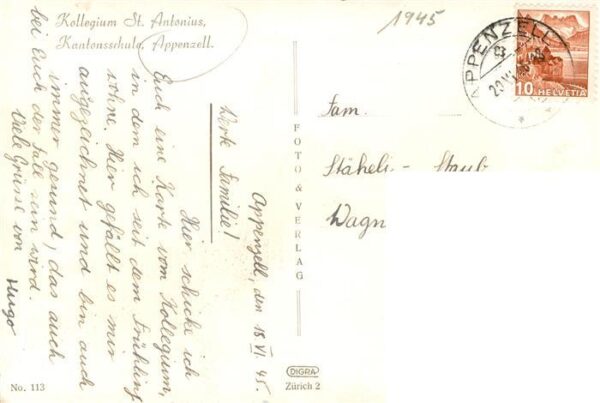 Kollegium St. Antonius,
Kantonsschule, Appenzell.
1945
APPENZELL
10 HELVETIA
Appenzell, den 18 VI. 45.
Familie!
Hier schicke ich
Euch eine Karte vom Kollegium,
in dem ich seit dem Frühling
wohne. Hier gefällt es mir
ausgezeichnet und bin auch
immer gesund, das auch
bei Euch der Fall sein wird.
Viele Grüsse von
Hugo
FOTO & VERLAG
Fam.
Stäheli - Staub
Wagn
No. 113
DIGRA
Zürich 2